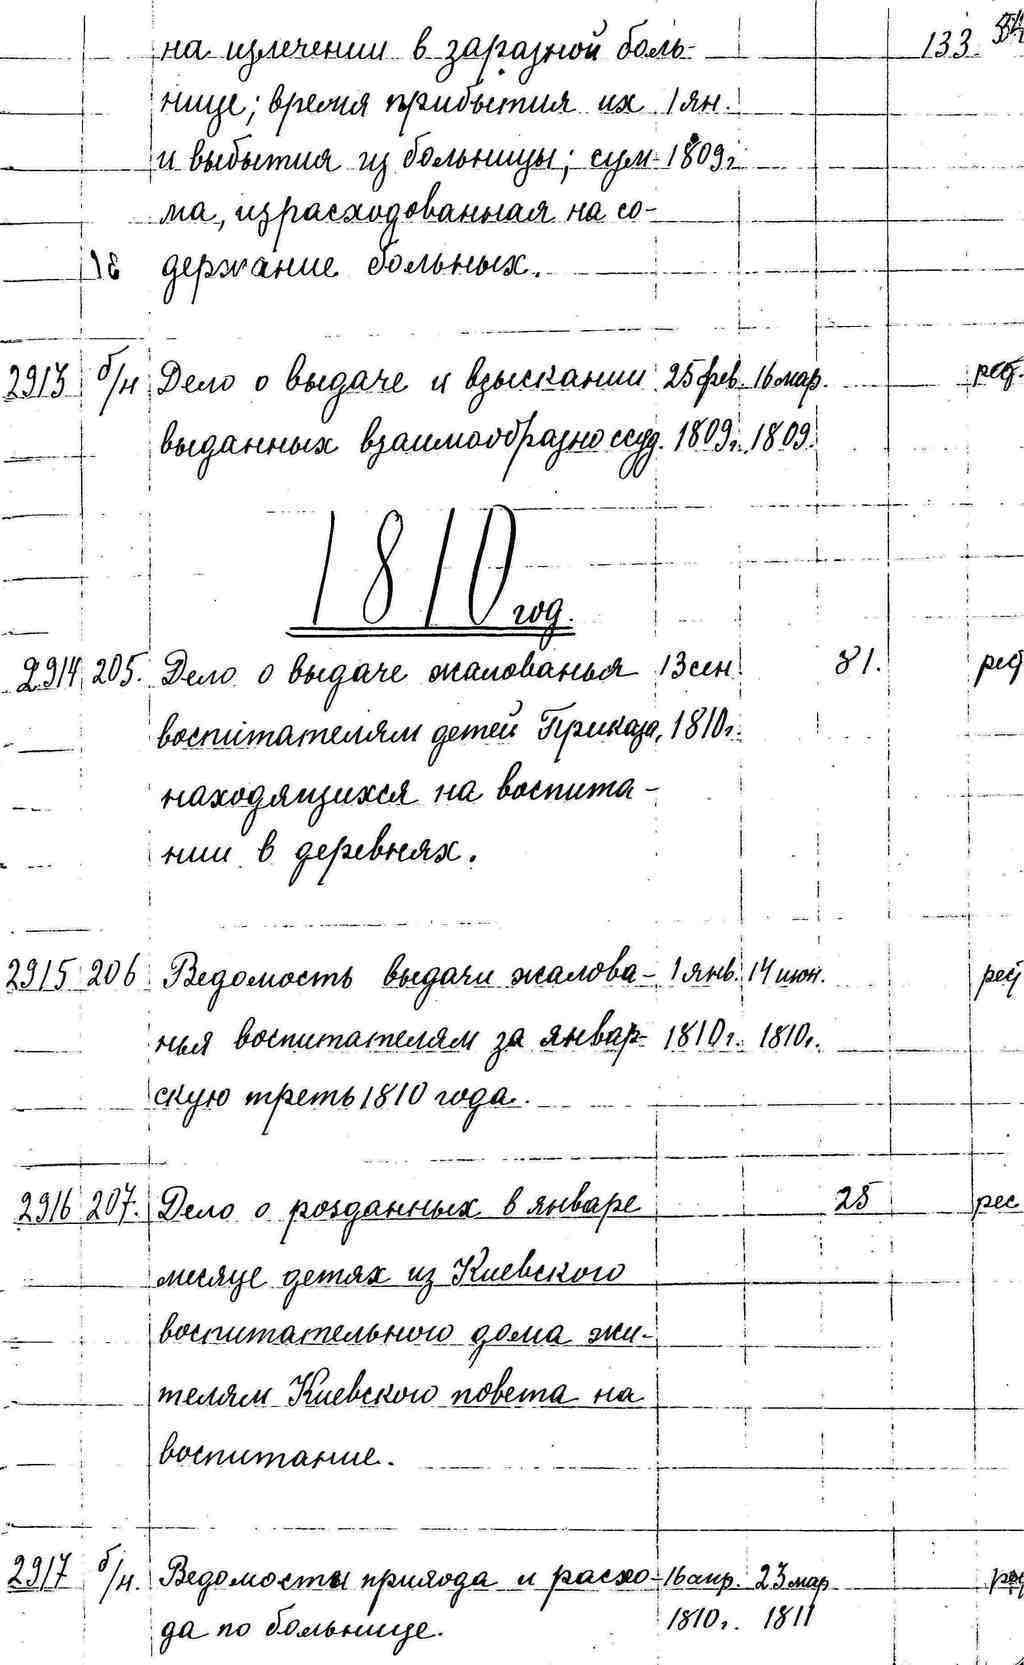 на излечении в заразной боль- 133
нице; время прибытия их 1 ян.
и выбытия из больницы; сум- 1809 г
ма, израсходованная на со-
держание больных.
2913 б/н Дело о выдаче и взыскании 25 фев. 16 мар. рест.
выданных взаимообразно ссуд. 1809 г. 1809.
1810 год.
2914 205. Дело о выдаче жалованья 13 сен 81. рест
воспитателям детей Приказа, 1810 г.
находящихся на воспита-
нии в деревнях.
2915 206 Ведомость выдачи жалова- 1 янв. 14 июн. рест
нья воспитателям за январ- 1810 г. 1810 г.
скую треть 1810 года.
2916 207. Дело о розданных в январе 25 рес
месяце детях из Киевского
воспитательного дома жи-
телям Киевского повета на
воспитание.
2917 б/н. Ведомосты прихода и расхо- 16 апр. 23 мар
да по больнице. 1810 г. 1811